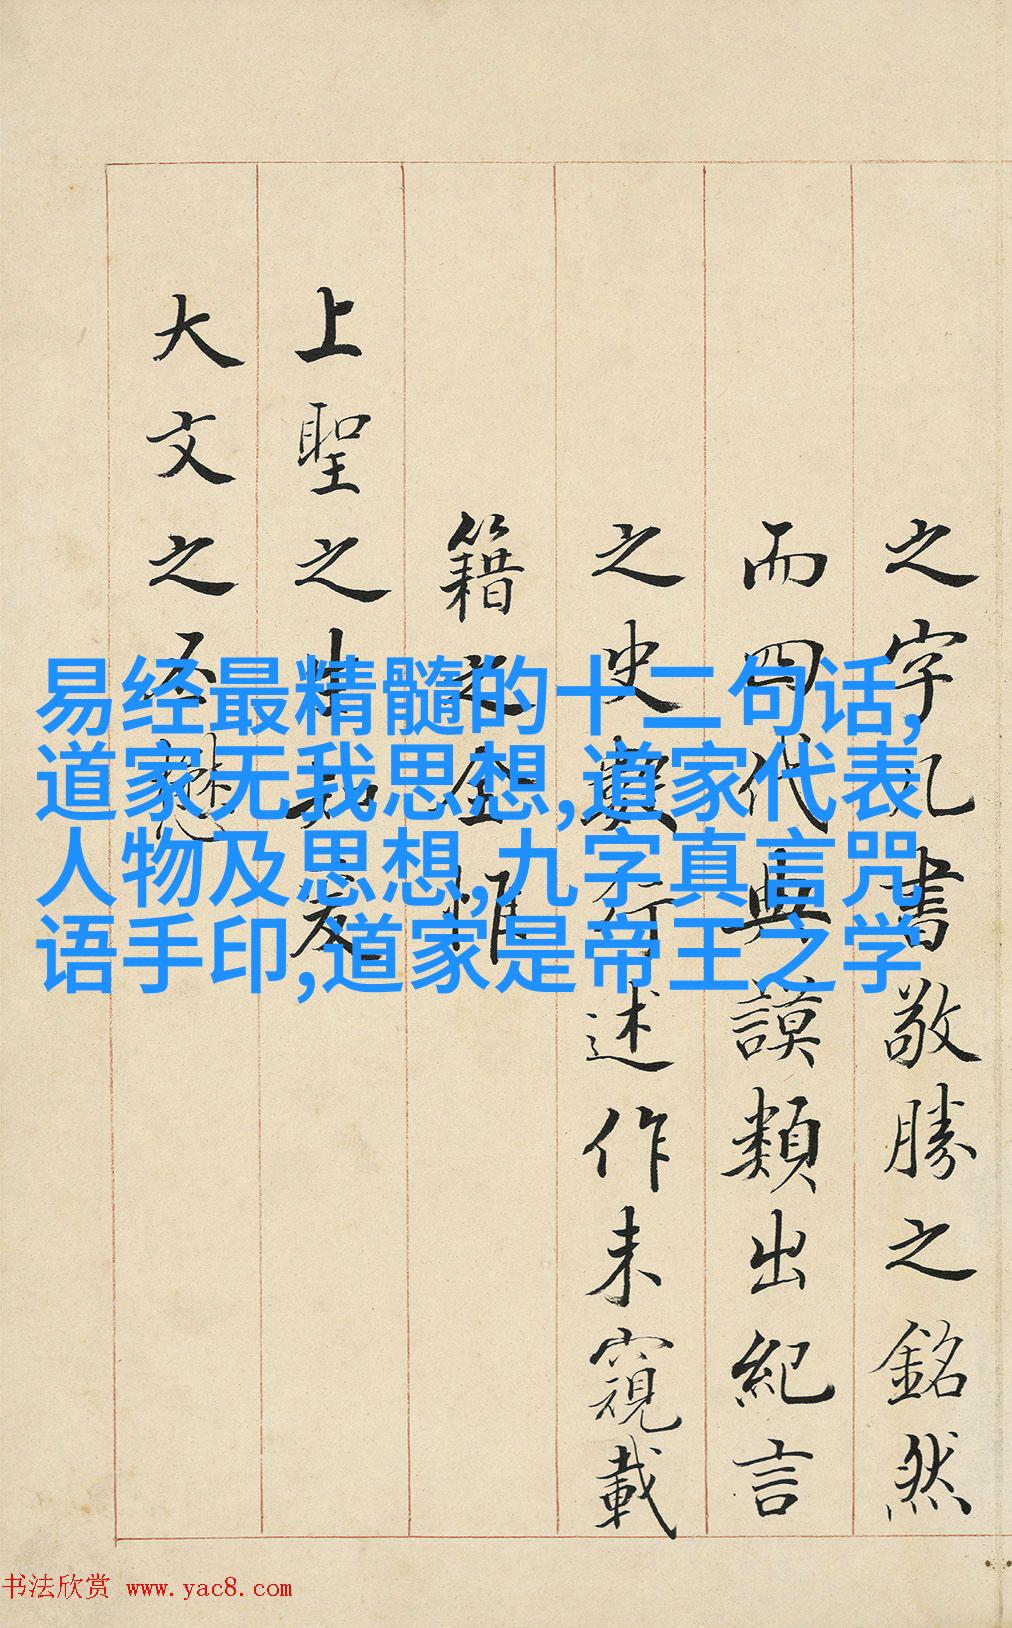 之字几書敬勝之銘然
而四代典謨類出紀言
之史行述作未窺載
籍之全惟
上聖之
大文之丕懋
易经最精髓的十二句话,
道家无我思想,道家代表
人物及思想,九字真言咒
语手印,道家是帝王之学
书法欣赏 www.yac8.com